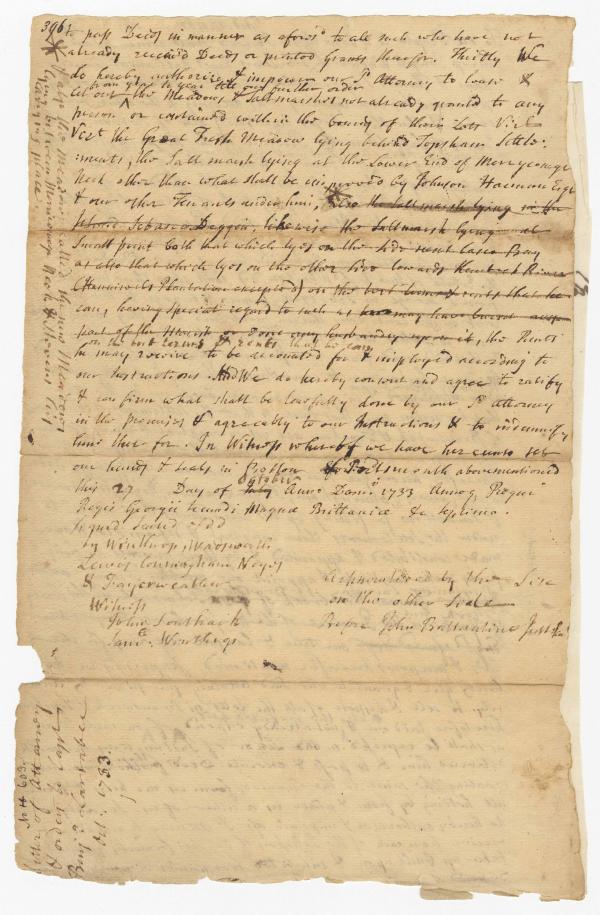 396.
to pass Deeds in manner as afores.d to all such who have not
already receiv'd Deeds or printed Grants therefor. Thirdly We
do hereby authorize & impower our s.d Attorney to lease &
from year to year till our further order
let out the Meadows & Saltmarshes not already granted to any
person or contained within the bounds of their Lotts Viz.t
the Great Fresh Meadow lying behind Topsham Settle-
ments, the Salt marsh lying at the Lower End of Merryconege
Neck other than what shall be improved by Johnson Harmon Esq.r
& our other Tenants under him, also the saltmarsh lying in the
Island Sebasco Deggin, likewise the Saltmarsh lying at
Small point both that which lyes on the side next Casco Bay
as also that which lyes on the other side towards Kennebeck River
(Hunniwels Plantation excepted) on the best terms & rents that he
can, having special regard to such as may have burnt
part of the Marsh or done any husbandry upon it, the Rents
on the best terms & rents that he can
he may receive to be accounted for & imployed according to
our Instructions. And We do hereby consent and agree to ratify
& confirm what shall be lawfully done by our s.d Attorney
in the premises & agreeably to our Instructions & to indemnify
him therfor. In Witness whereof we have hereunto set
our hands & seals in Boston & Portsmouth abovementioned
October
this 27 Day of July Anno Dom.i 1733 Annoq Regni
Regis Georgii secundi Magnæ Brittaniæ &c Septimo.
Signed sealed & dd
by Winthrop, Wadsworth
Lewis Cunningham Noyes
& Fayerweather
Witness
John Southack
Sam.l Winthrop
Acknowledged by the Six
on the other Side
Before John Ballantine Just. Pac.
* Large the Meadow called the new Meadows
lying between Merryconege Neck & Stevens's
Carrying place
No. 603.
Letter of Attorney
Benj.a Larrabee
Oct.r 1733.